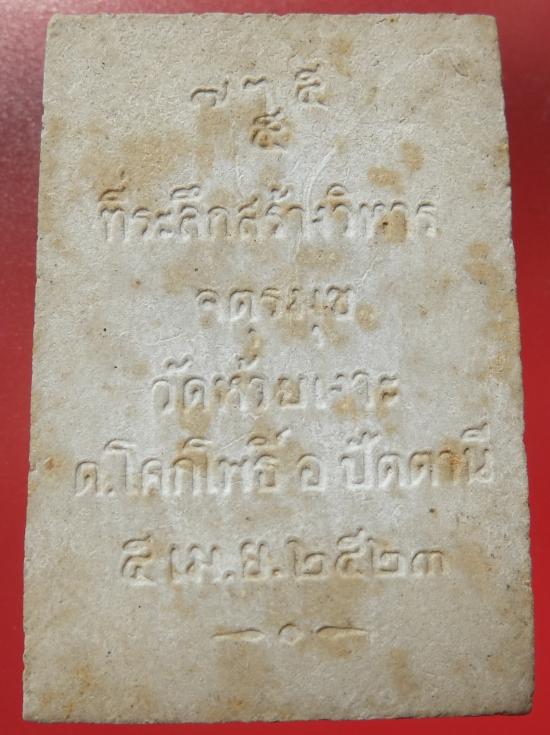 ๗ ๓ ๕
๕
ที่ระลึกสร้างวิหาร
จตุรมุข
วัดห้วยเงาะ
ต.โคกโพธิ์ อ ปัตตานี
๕ เม.ย.๒๕๒๓